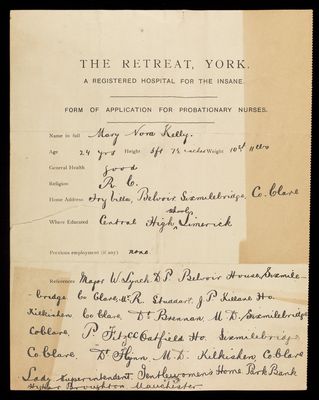 THE RETREAT, YORK.
A REGISTERED HOSPITAL FOR THE INSANE.
FORM OF APPLICATION FOR PROBATIONARY NURSES.
Name in full Mary Nora Kelly.
Age 24 yrs Height 5ft 7½ inches Weight 10st 11lbs
General Health good
Religion R. C.
Home Address Ivy Villa, Belvoir Sixmilebridge, Co. Clare
Where Educated Central High Schools Limerick
Previous employment (if any) none.
References Major W. Lynch D.P. Belvoir House, Sixmile-
bridge Co Clare, R. Studdart. J.P Killane Ho.
Kilkishen, Co Clare. Dr Brennan M.D. Sixmilebridge
Co Clare, P Oatfield Ho. Sixmilebridge
Co Clare. Dr Flynn M.D. Kilkishen, Co Clare
Lady Superintendent, Gentlewomen's Home Park Bank
Higher Broughton Manchester